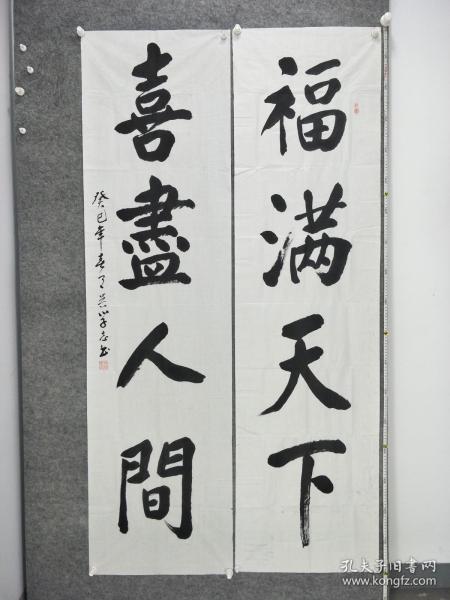 福满天下
喜盡人間
癸巳年春月吴学志书
孔夫子旧书网
www.kongfz.com